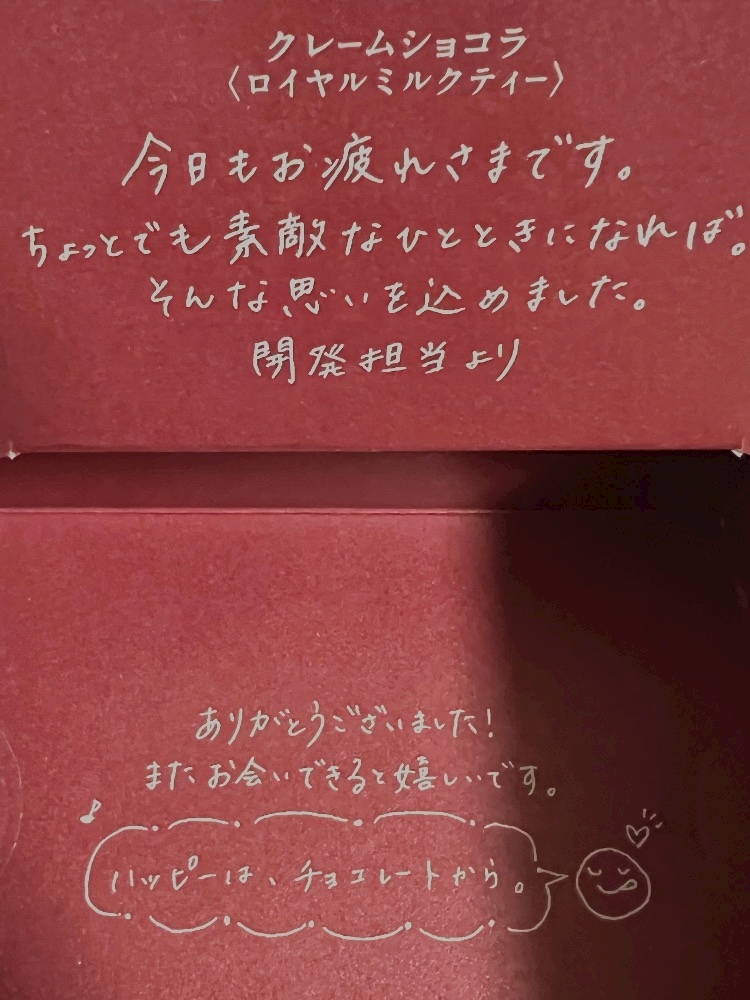 クレームショコラ
〈ロイヤルミルクティー〉
今日もお疲れさまです。
ちょっとでも素敵なひとときになれば。
そんな思いを込めました。
開発担当より
ありがとうございました！
またお会いできると嬉しいです。
ハッピーは、チョコレートから。